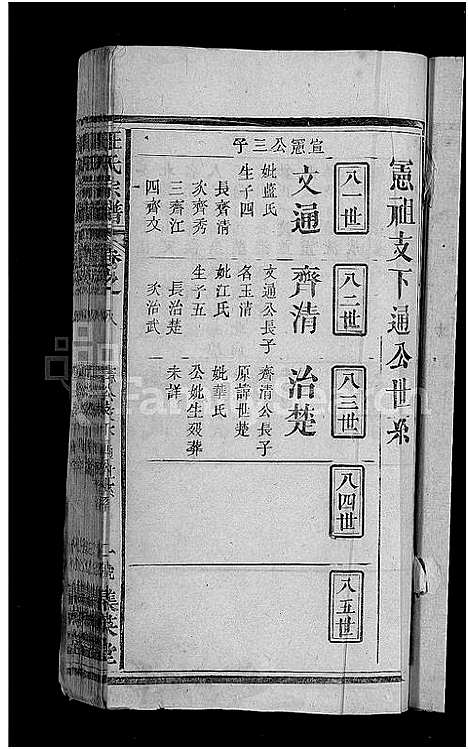 憲祖支下通公世系
八一世
宣憲公三子
文通
妣藍氏
生子四
長齊清
次齊秀
三齊江
四齊文
八二世
齊清
文通公長子
名玉清
妣江氏
生子五
長治楚
次治武
八三世
治楚
齊清公長子
原諱世楚
妣華氏
公妣生殁葬
未詳
八四世
八五世
汪氏宗譜
集英堂